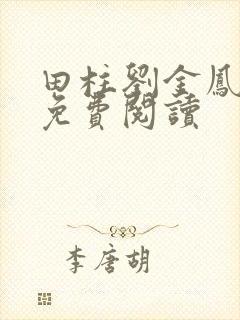 田柱劉金鳳
免費閱讀
李唐胡